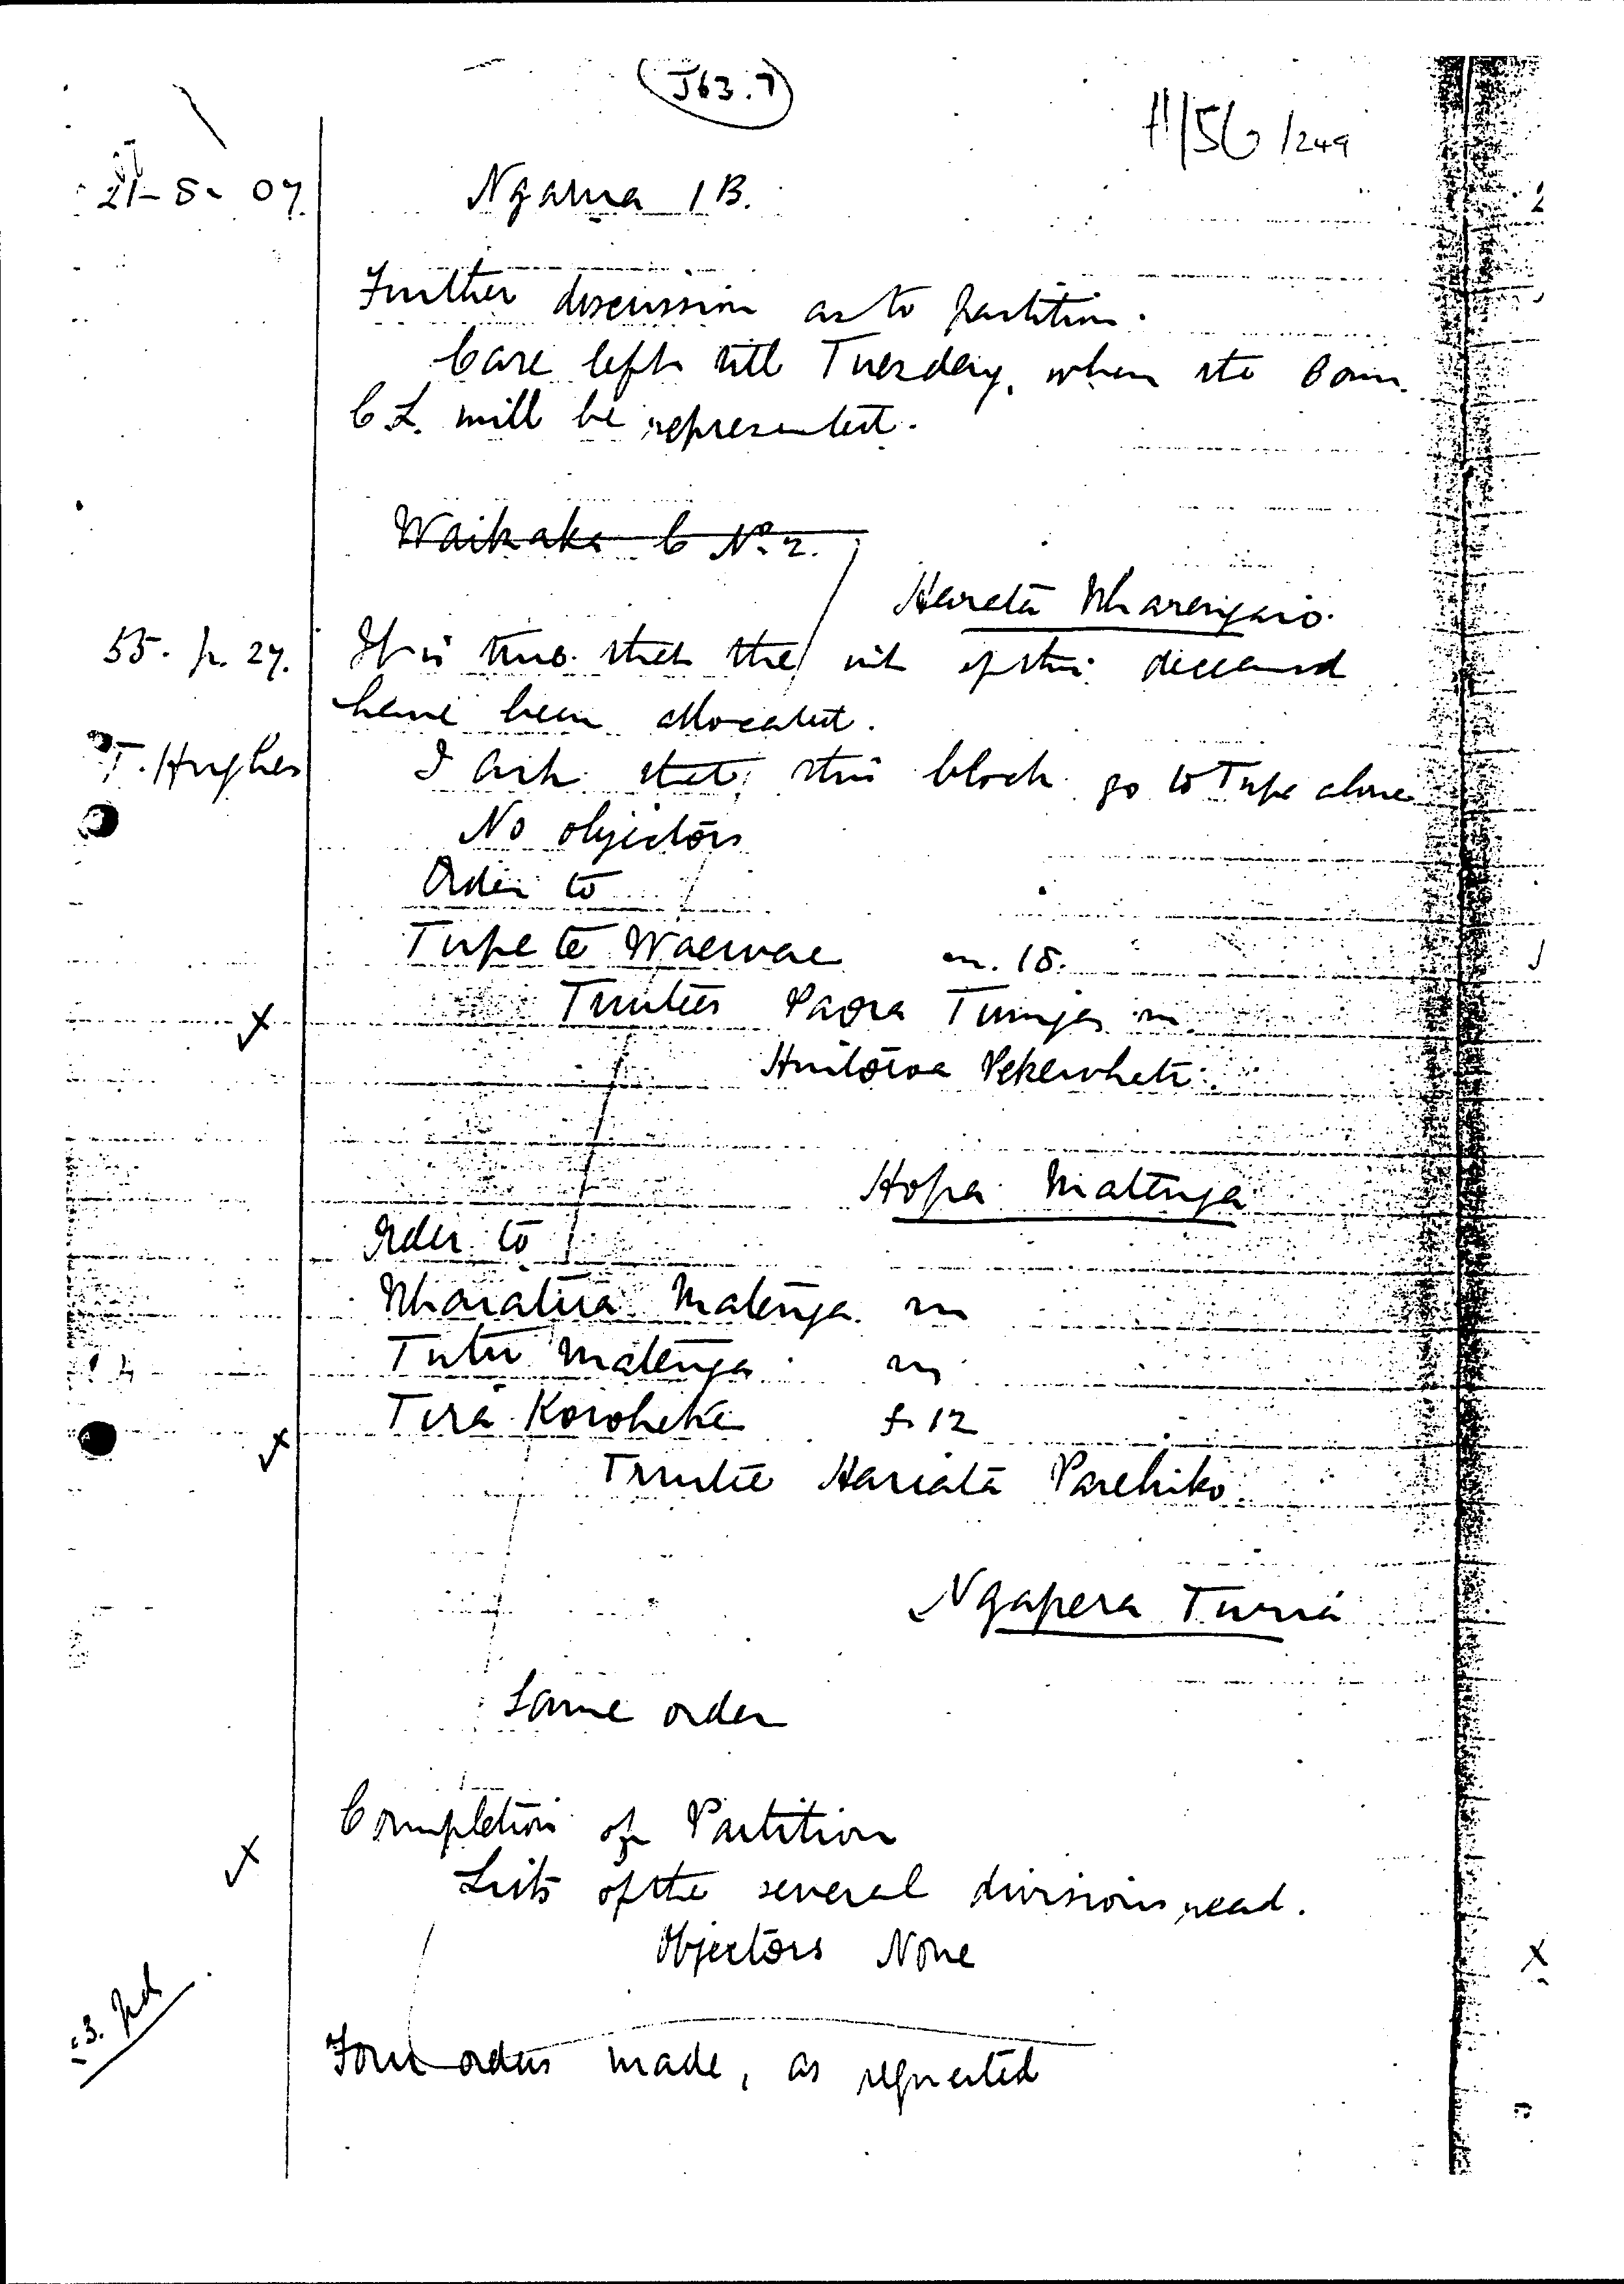 J63.7
H/56/249
21-8-07. Ngarua 1B.
Further discussion as to partition.
Case left till Tuesday, when the Com.
C.L. will be represented.
Waikaka C No. 2.
Hareta Wharengaro.
55. p. 27. It is true that the int of this deceased
have been allocated.
T. Hughes I ask that this block go to Tupe alone
No objectors
Order to
Tupe te Waewae m. 18.
Trustees Paora Tunga m.
Huitoroa Pekewhati
Hopa Matenga
Order to
Wharatira Matenga m
Tutu Matenga m
Tira Koroheke f 12
Trustee Hariata Parehiko
Ngapera Turia
Same order
Completion of Partition
Lists of the several divisions read.
Objectors None
Four orders made, as requested